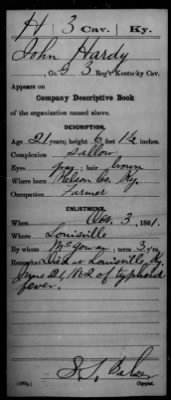 H 3 Cav. Ky.
John Hardy
, Co. G 3 Reg't Kentucky Cav.
Appears on
Company Descriptive Book
of the organization named above.
DESCRIPTION.
Age 21 years; height 6 feet 1½ inches.
Complexion Sallow
Eyes gray; hair brown
Where born Nelson Co. Ky.
Occupation Farmer
ENLISTMENT.
When Oct. 3, 1861.
Where Louisville
By whom McGowen; term 3 y'rs.
Remarks: Died at Louisville, Ky.
June 21, 1862 of typhoid
fever.
Copyist.